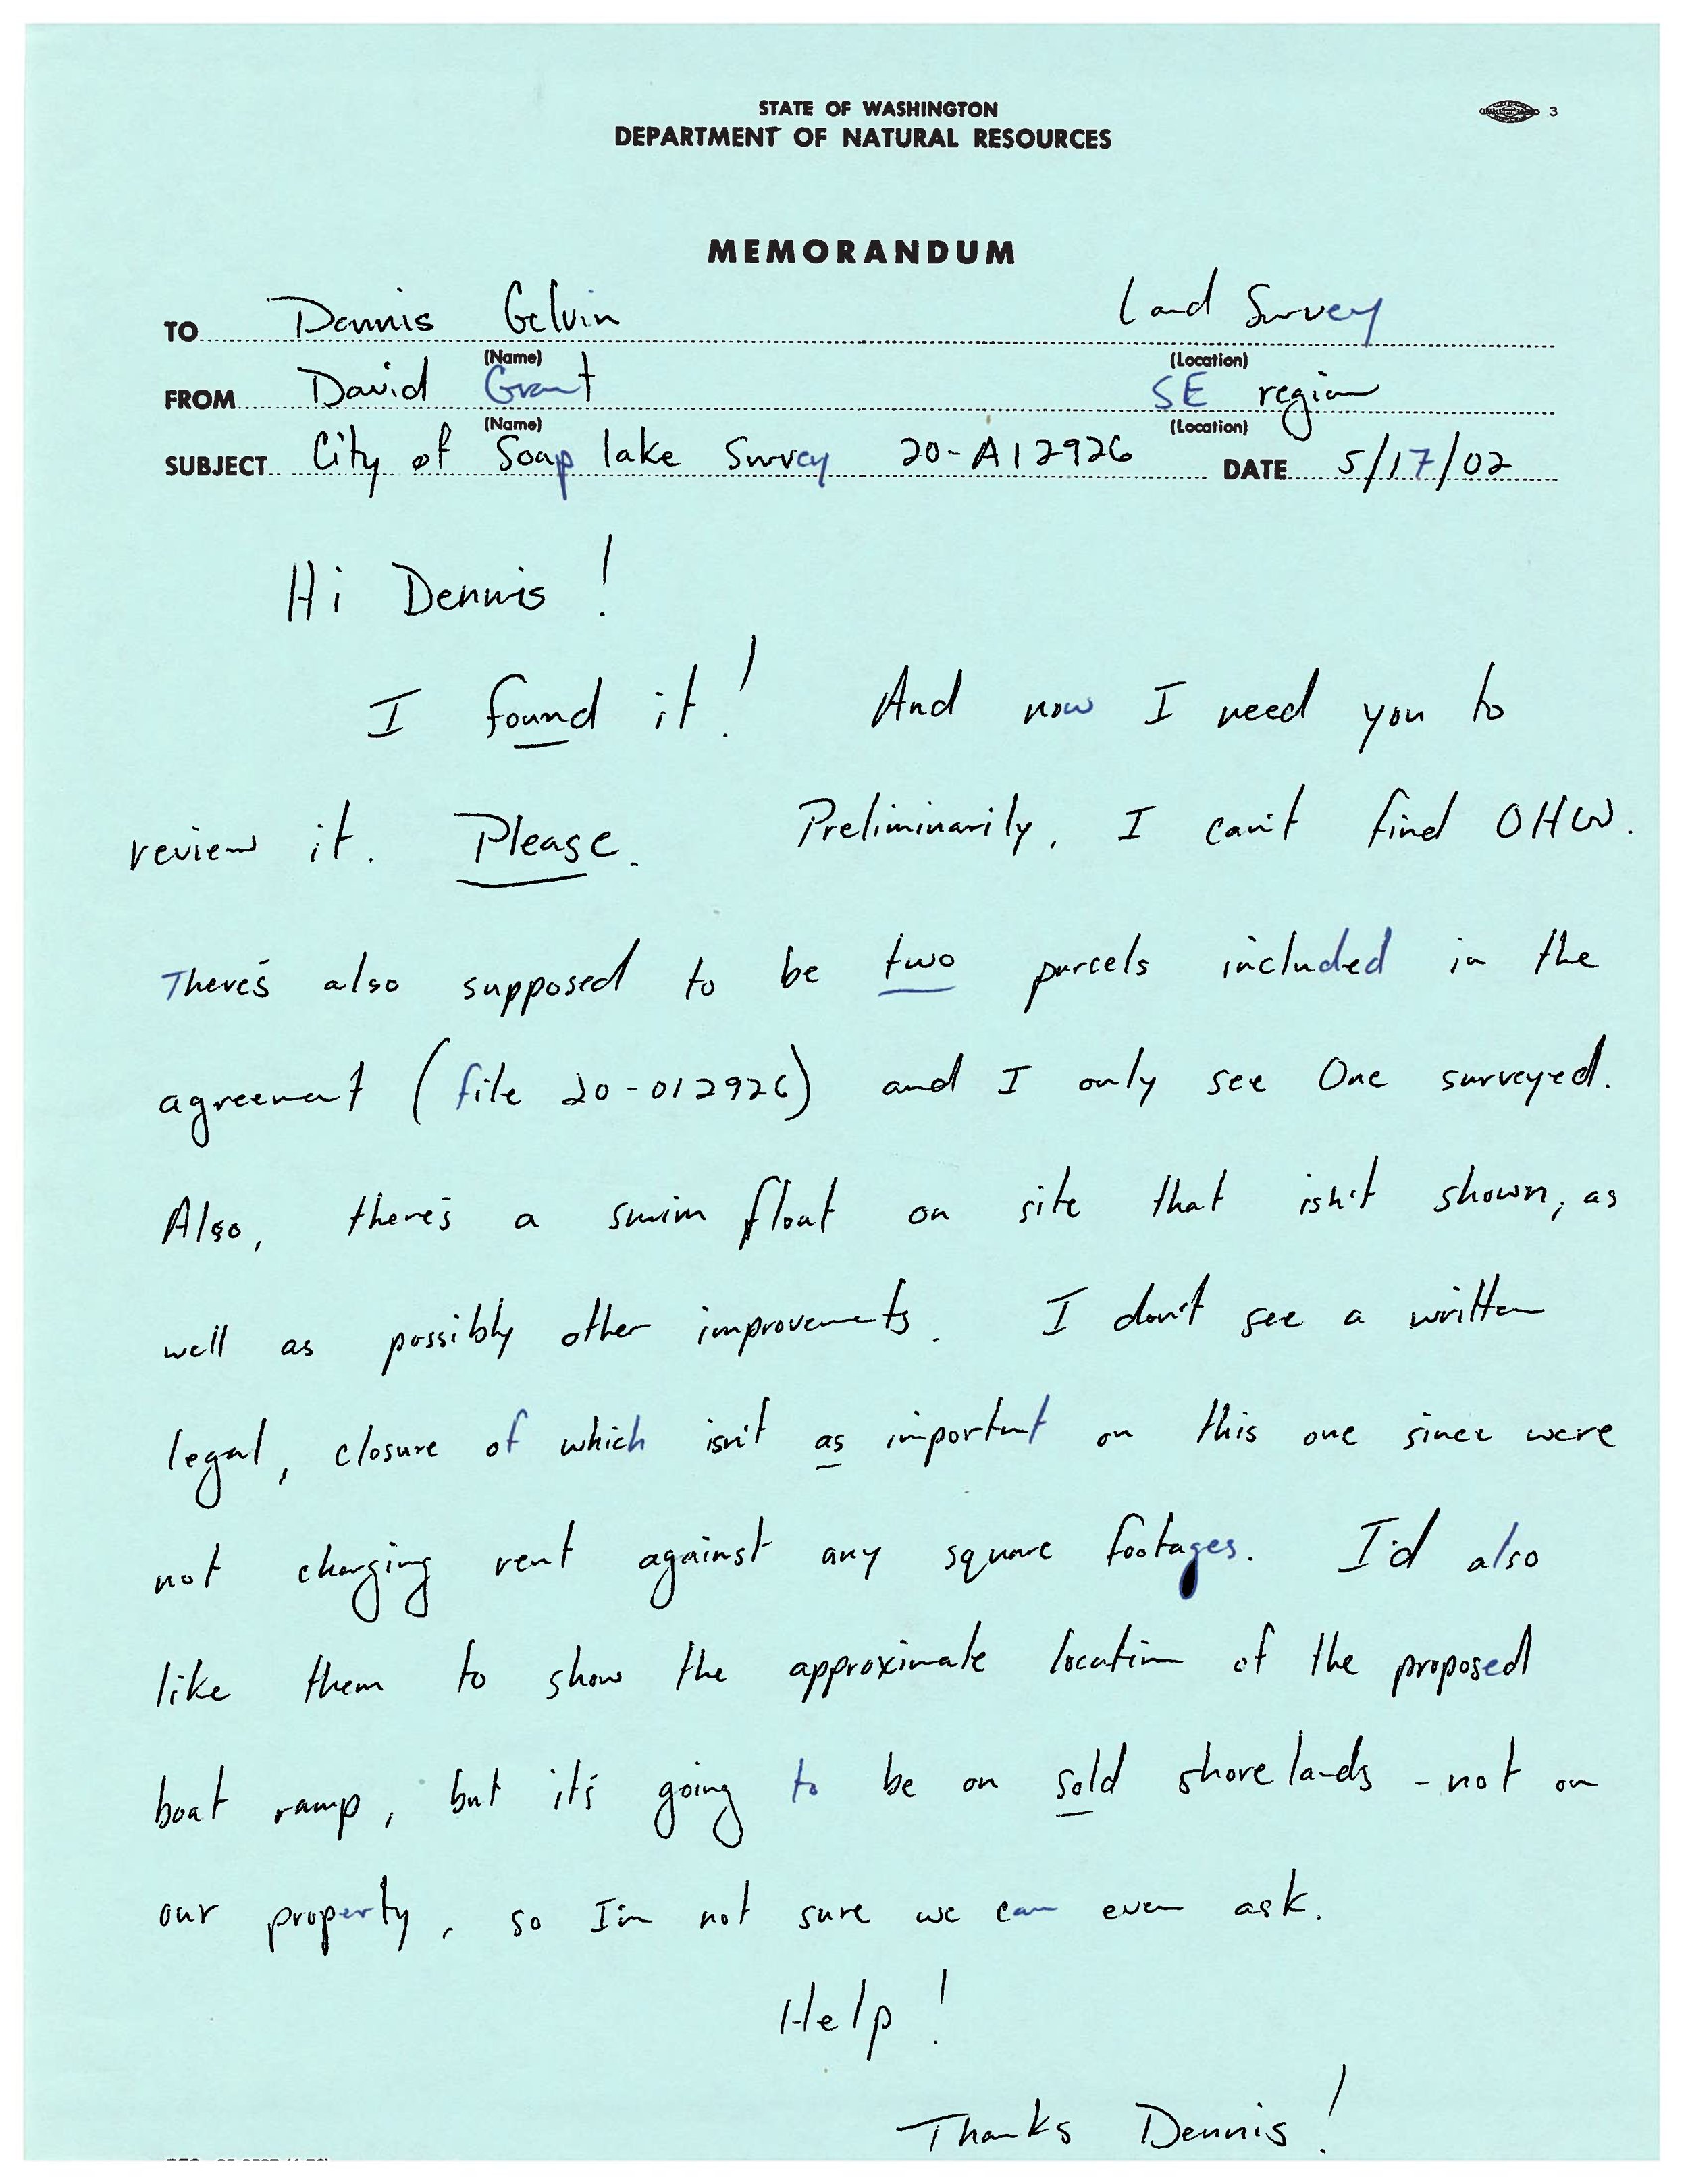 STATE OF WASHINGTON
DEPARTMENT OF NATURAL RESOURCES
3
MEMORANDUM
TO Dennis Gelvin Land Survey
(Name) (Location)
FROM David Grant SE region
(Name) (Location)
SUBJECT City of Soap lake Survey 20-A12926 DATE 5/17/02
Hi Dennis!
I found it! And now I need you to
review it. Please. Preliminarily, I can't find OHW.
There's also supposed to be two parcels included in the
agreement (file 20-012926) and I only see One surveyed.
Also, there's a swim float on site that isn't shown, as
well as possibly other improvements. I don't see a written
legal, closure of which isn't as important on this one since we're
not charging rent against any square footages. I'd also
like them to show the approximate location of the proposed
boat ramp, but it's going to be on sold shorelands - not on
our property, so I'm not sure we can even ask.
Help!
Thanks Dennis!